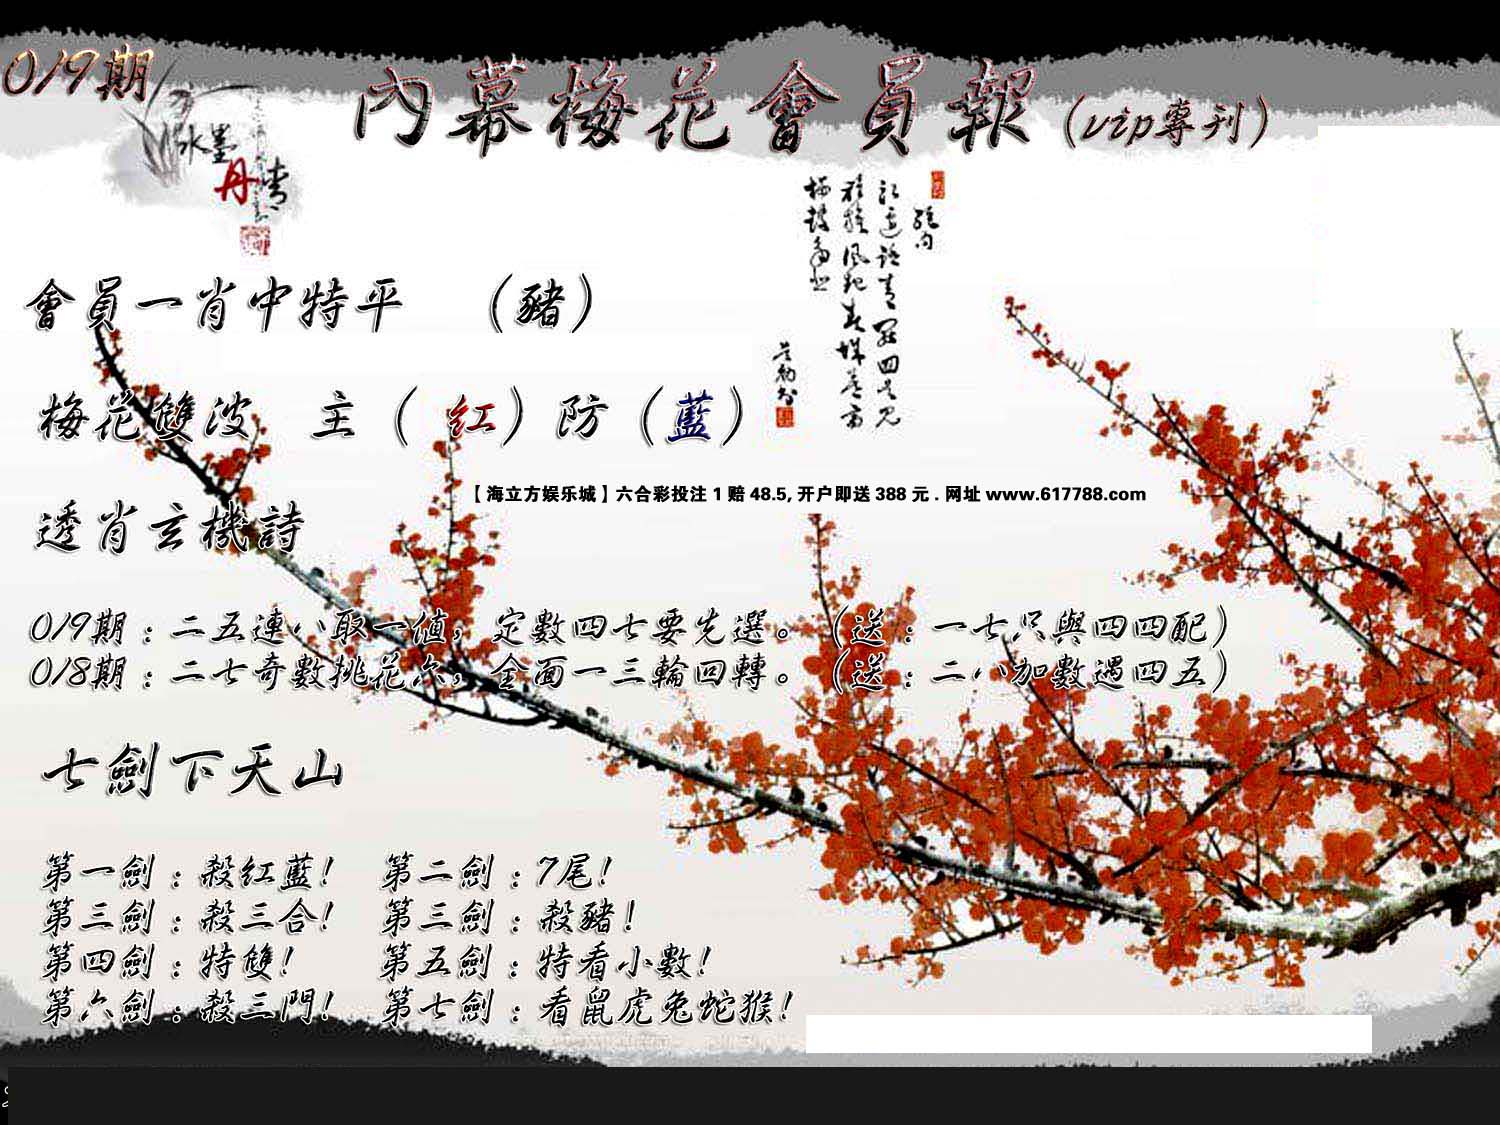 019期
內幕梅花會員報(vip專刊)
水墨
丹青
會員一肖中特平 （豬）
梅花雙波 主（紅）防（藍）
【海立方娱乐城】六合彩投注1赔48.5,开户即送388元.网址www.617788.com
透肖玄機詩
019期：二五連八取一值，定數四七要先選。（送：一七只與四四配）
018期：二七奇數挑花六，全面一三輪回轉。（送：二八加數遇四五）
七劍下天山
第一劍：殺紅藍! 第二劍：7尾!
第三劍：殺三合! 第三劍：殺豬!
第四劍：特雙! 第五劍：特看小數!
第六劍：殺三門! 第七劍：看鼠虎兔蛇猴!